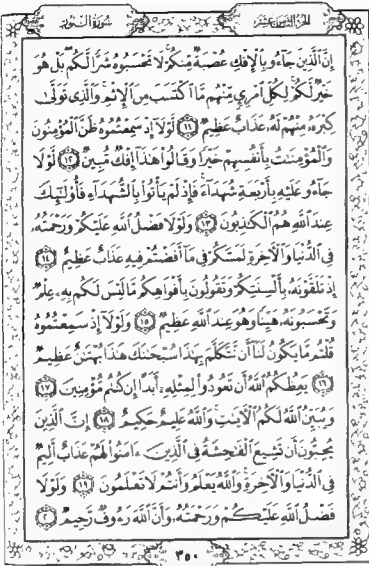 الجزء الثامن عشر سورة النور
إِنَّ ٱلَّذِينَ جَآءُو بِٱلْإِفْكِ عُصْبَةٌ مِّنكُمْ لَا تَحْسَبُوهُ شَرًّا لَّكُم بَلْ هُوَ
خَيْرٌ لَّكُمْ لِكُلِّ ٱمْرِئٍ مِّنْهُم مَّا ٱكْتَسَبَ مِنَ ٱلْإِثْمِ وَٱلَّذِى تَوَلَّىٰ
كِبْرَهُۥ مِنْهُمْ لَهُۥ عَذَابٌ عَظِيمٌ ١١ لَّوْلَآ إِذْ سَمِعْتُمُوهُ ظَنَّ ٱلْمُؤْمِنُونَ
وَٱلْمُؤْمِنَٰتُ بِأَنفُسِهِمْ خَيْرًا وَقَالُوا۟ هَٰذَآ إِفْكٌ مُّبِينٌ ١٢ لَّوْلَا
جَآءُو عَلَيْهِ بِأَرْبَعَةِ شُهَدَآءَ فَإِذْ لَمْ يَأْتُوا۟ بِٱلشُّهَدَآءِ فَأُو۟لَٰٓئِكَ
عِندَ ٱللَّهِ هُمُ ٱلْكَٰذِبُونَ ١٣ وَلَوْلَا فَضْلُ ٱللَّهِ عَلَيْكُمْ وَرَحْمَتُهُۥ
فِى ٱلدُّنْيَا وَٱلْءَاخِرَةِ لَمَسَّكُمْ فِى مَآ أَفَضْتُمْ فِيهِ عَذَابٌ عَظِيمٌ ١٤
إِذْ تَلَقَّوْنَهُۥ بِأَلْسِنَتِكُمْ وَتَقُولُونَ بِأَفْوَاهِكُم مَّا لَيْسَ لَكُم بِهِۦ عِلْمٌ
وَتَحْسَبُونَهُۥ هَيِّنًا وَهُوَ عِندَ ٱللَّهِ عَظِيمٌ ١٥ وَلَوْلَآ إِذْ سَمِعْتُمُوهُ
قُلْتُم مَّا يَكُونُ لَنَآ أَن نَّتَكَلَّمَ بِهَٰذَا سُبْحَٰنَكَ هَٰذَا بُهْتَٰنٌ عَظِيمٌ
١٦ يَعِظُكُمُ ٱللَّهُ أَن تَعُودُوا۟ لِمِثْلِهِۦٓ أَبَدًا إِن كُنتُم مُّؤْمِنِينَ ١٧
وَيُبَيِّنُ ٱللَّهُ لَكُمُ ٱلْءَايَٰتِ وَٱللَّهُ عَلِيمٌ حَكِيمٌ ١٨ إِنَّ ٱلَّذِينَ
يُحِبُّونَ أَن تَشِيعَ ٱلْفَٰحِشَةُ فِى ٱلَّذِينَ ءَامَنُوا۟ لَهُمْ عَذَابٌ أَلِيمٌ
فِى ٱلدُّنْيَا وَٱلْءَاخِرَةِ وَٱللَّهُ يَعْلَمُ وَأَنتُمْ لَا تَعْلَمُونَ ١٩ وَلَوْلَا
فَضْلُ ٱللَّهِ عَلَيْكُمْ وَرَحْمَتُهُۥ وَأَنَّ ٱللَّهَ رَءُوفٌ رَّحِيمٌ ٢٠
٣٥٠